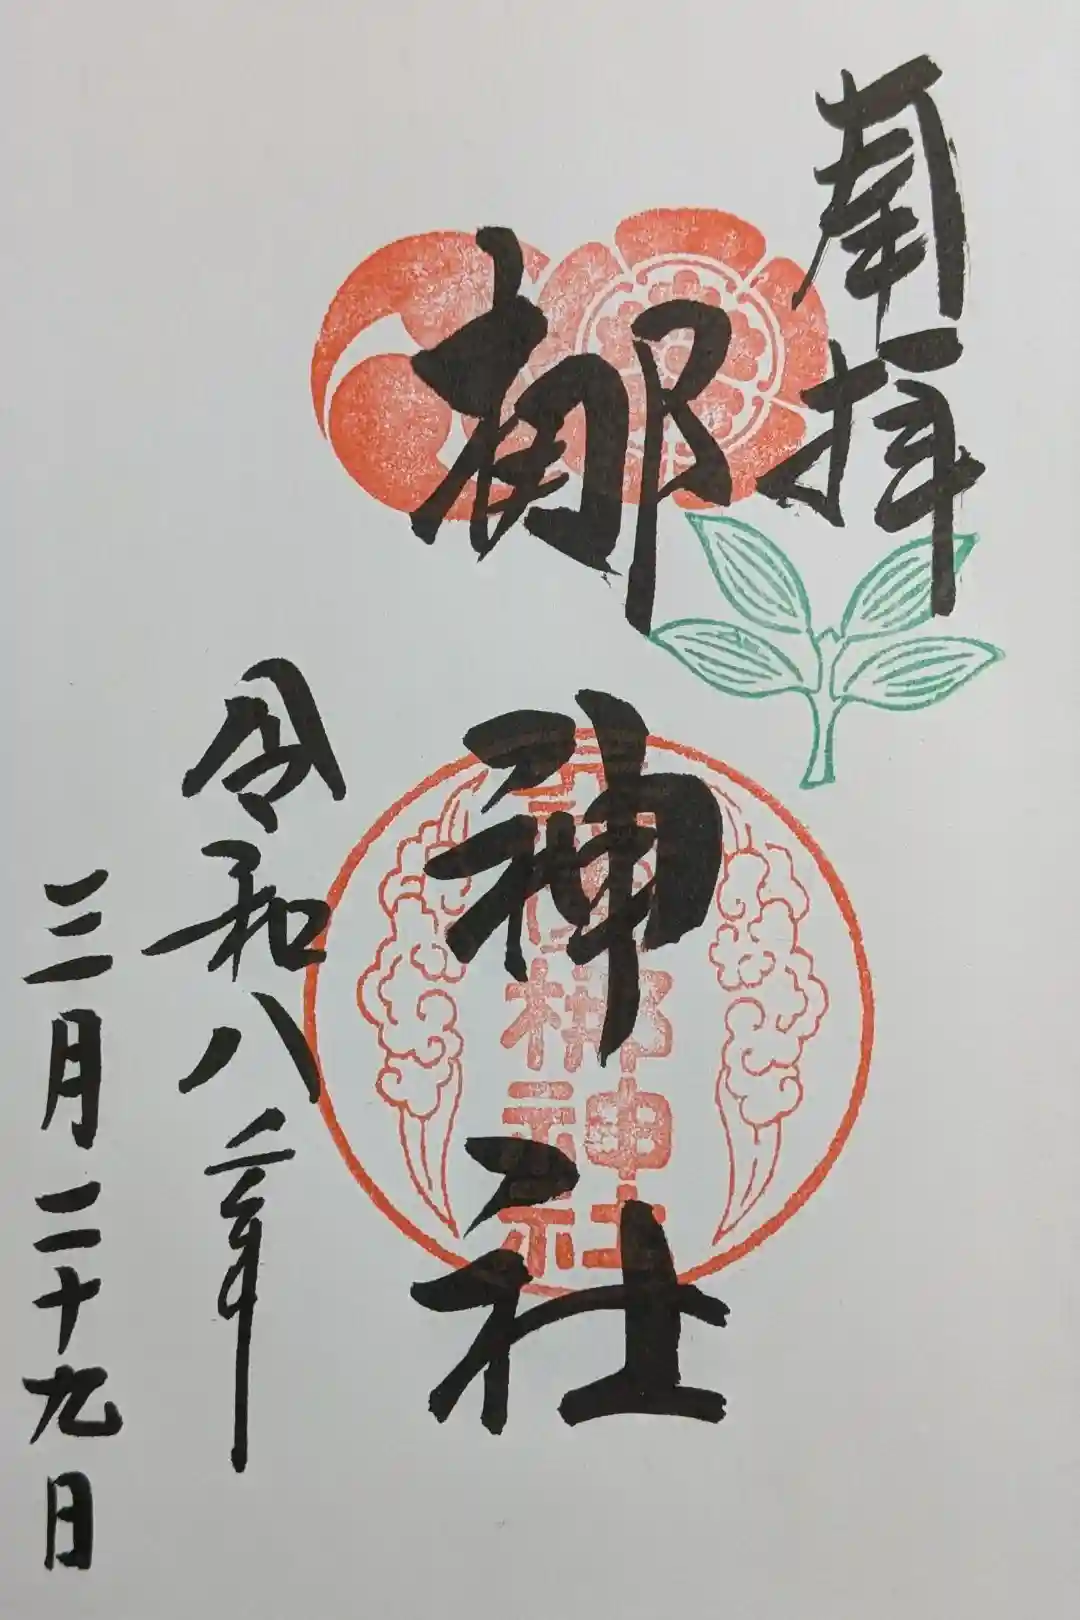 奉拝
梛神社
梛神社
令和八年
三月二十九日